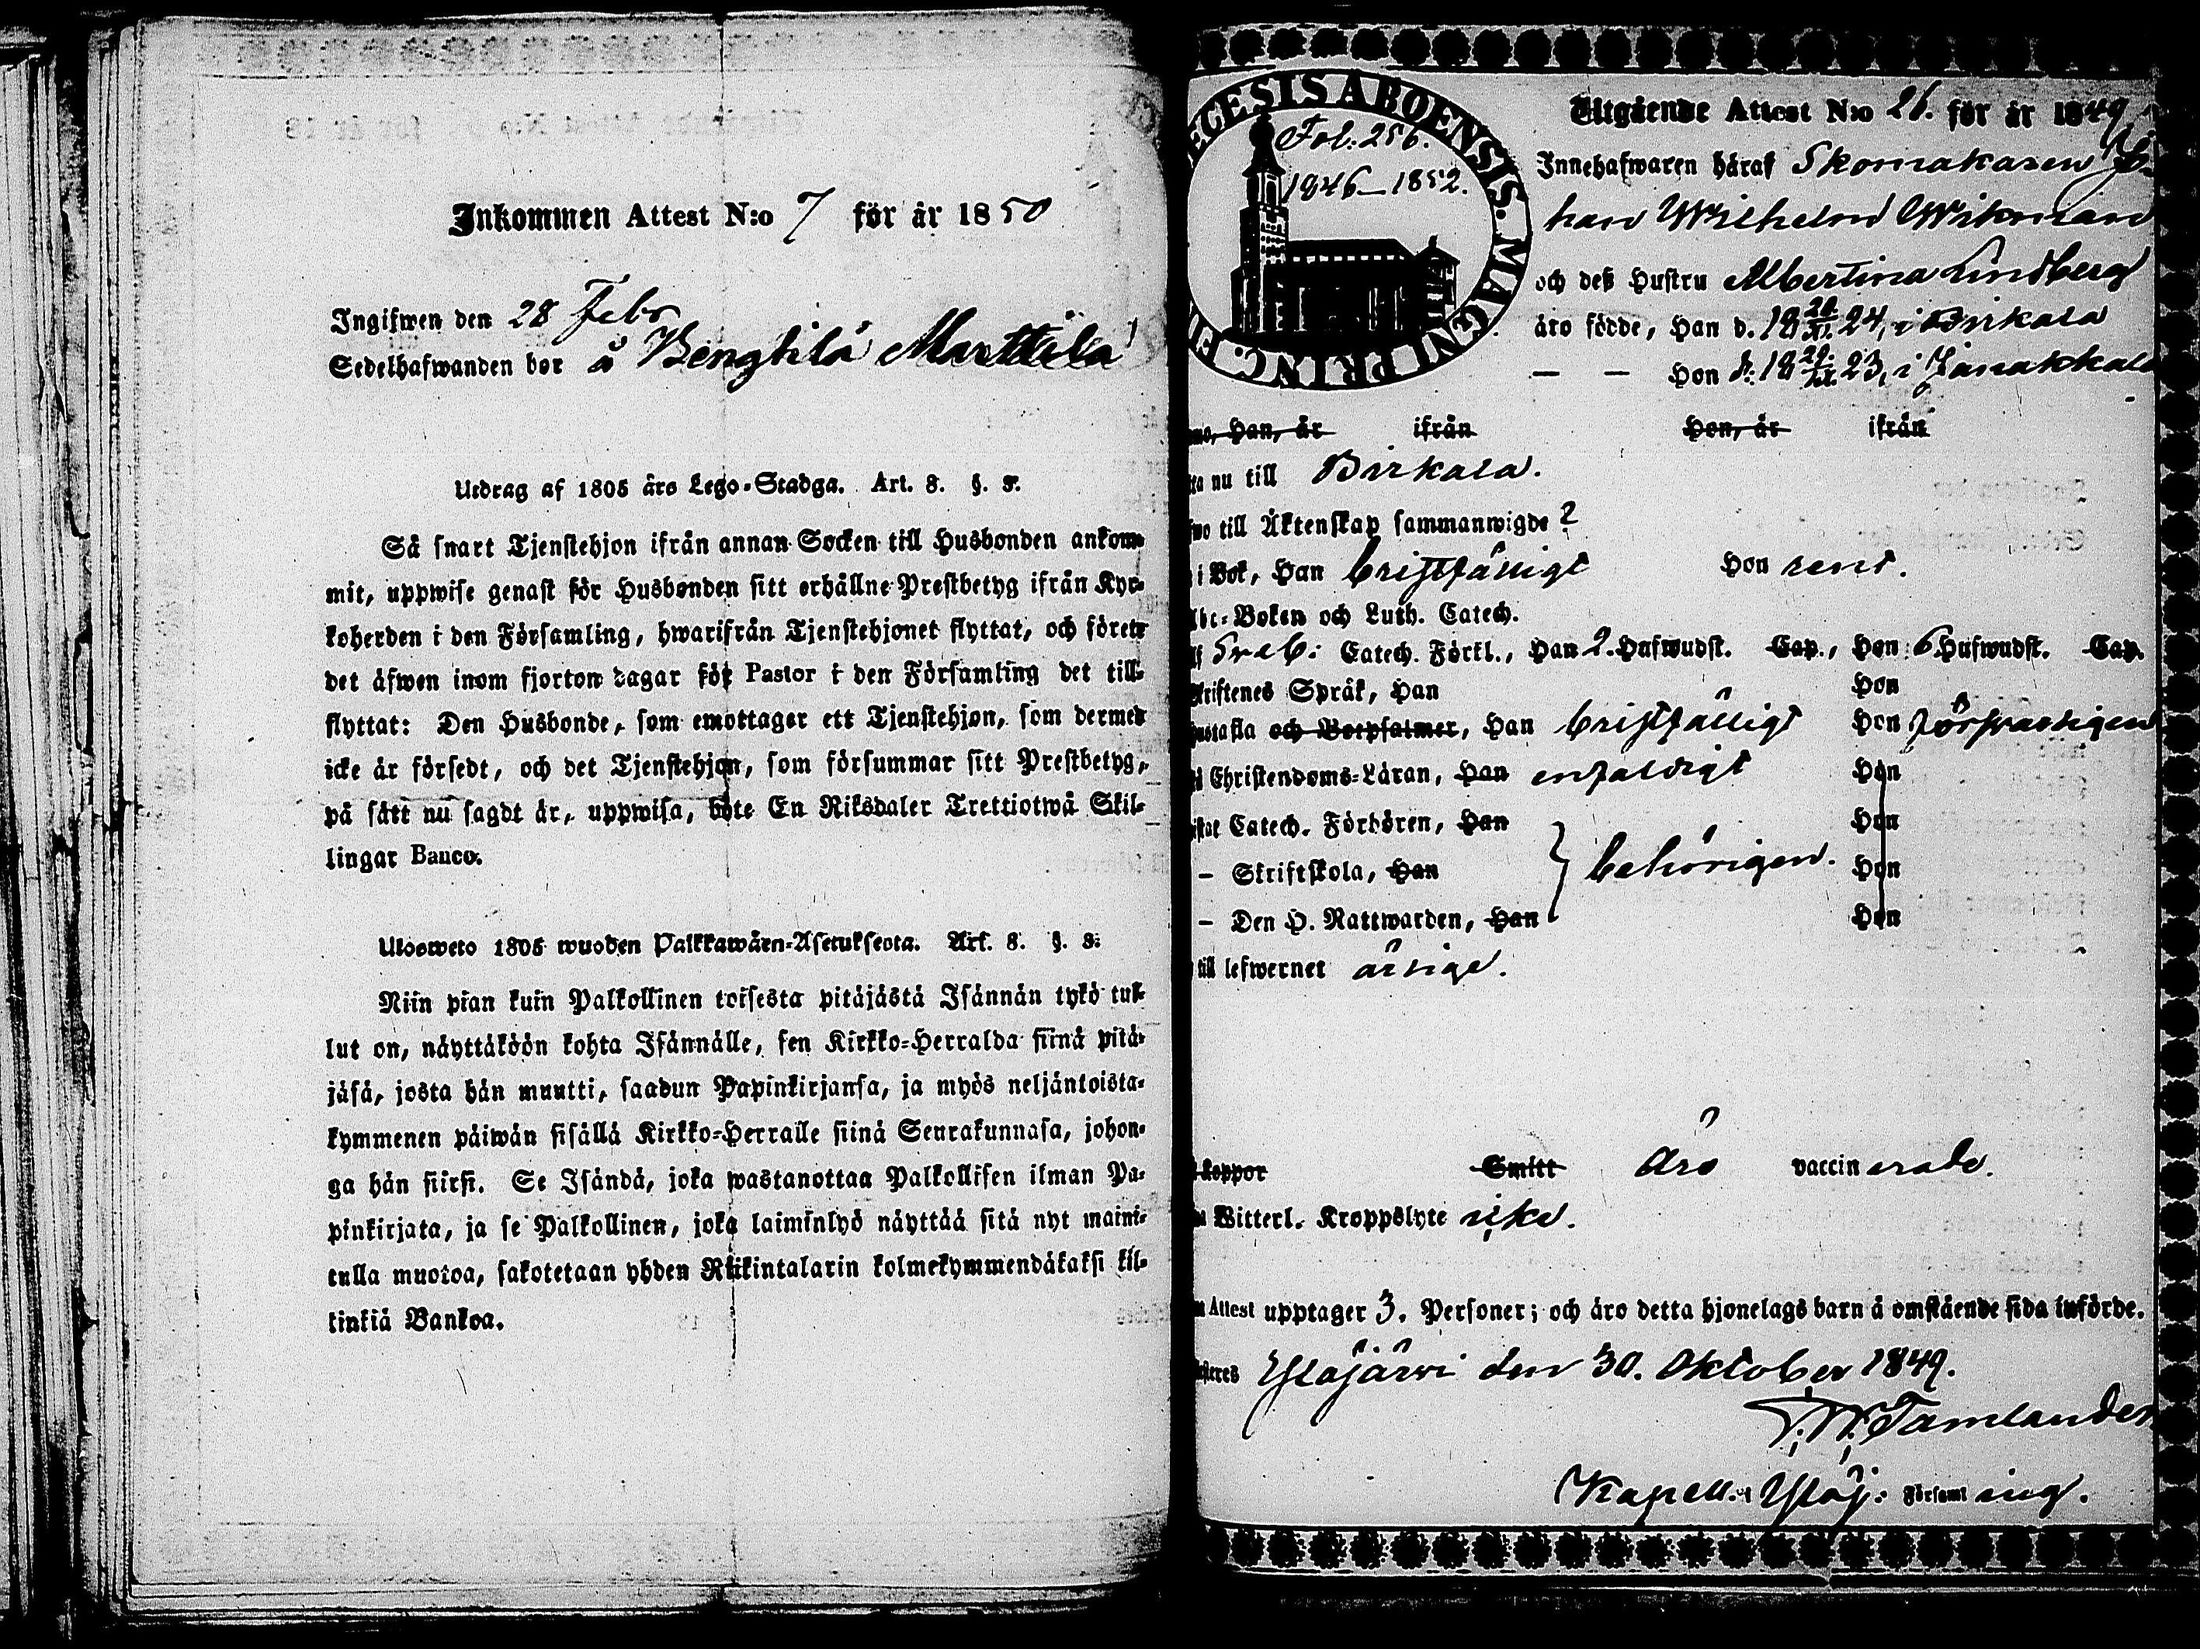 Inkommen Attest N:o 7 för år 1850
Ingifwen den 28 Febr
Sedelhafwanden bor å Bengtilä Marttila
Utdrag af 1805 års Lego-Stadga. Art. 8. §. 8.
Så snart Tjenstehjon ifrån annan Socken till Husbonden ankom-
mit, uppwise genast för Husbonden sitt erhållne Prestbetyg ifrån Kyr-
koherden i den Församling, hwarifrån Tjenstehjonet flyttat, och förete
det äfwen inom fjorton dagar för Pastor i den Församling det till-
flyttat: Den Husbonde, som emottager ett Tjenstehjon, som dermed
icke är försedt, och det Tjenstehjon, som försummar sitt Prestbetyg,
på sätt nu sagdt är, uppwisa, böte En Riksdaler Trettiotwå Skil-
lingar Banco.
Ulosweto 1805 wuoden Palkkawäen-Asetuksesta. Art. 8. §. 8.
Niin pian kuin Palkollinen toisesta pitäjästä Isännän tykö tul-
lut on, näyttäköön kohta Isännälle, sen Kirkko-Herralda siinä pitä-
jäsä, josta hän muutti, saadun Papinkirjansa, ja myös neljäntoista-
kymmenen päiwän sisällä Kirkko-Herralle siinä Seurakunnasa, johon-
ga hän siirsi. Se Isändä, joka wastanottaa Palkollisen ilman Pa-
pinkirjata, ja se Palkollinen, joka laiminlyö näyttää sitä nyt maini-
tulla muotoa, sakotetaan yhden Riikintalarin kolmekymmendäkaksi kil-
linkiä Bankoa.
ECESIS ABOENSIS. MAGNI PRINC. FI
Fol. 256.
1846–1852.
Utgående Attest N:o 26. för år 1849
Innehafwaren häraf Skomakaren Jo-
han Wilhelm Wikman
och deß Hustru Albertina Lindberg
äro födde, Han d. 18 24, i Birkala
— — Hon d. 18 23, i Janakkala
Han, år ifrån Hon, år ifrån
nu till Birkala.
till Äktenskap sammanwigde 2
i Bok, Han bristfälligt Hon rent.
Boken och Luth. Catech.
Sveb. Catech. Förkl., Han 2. Hufwudst. Cap., Hon 6 Hufwudst. Cap.
Skriftenes Språk, Han Hon
Hustafla och Botpsalmer, Han bristfälligt Hon försvarligen
Christendoms-Läran, Han enfaldigt Hon
Catech. Förhören, Han Hon
— Skriftskola, Han behörigen. Hon
— Den H. Nattwarden, Han Hon
till lefwernet ärlige.
koppor Smitt äro vaccinerade.
Witterl. Kroppslyte icke.
Attest upptager 3. Personer; och äro detta hjonelags barn å omstående sida införde.
Ylöjärvi den 30. Oktober 1849.
Tamlander
Kapell. i Ylöj. Församling.